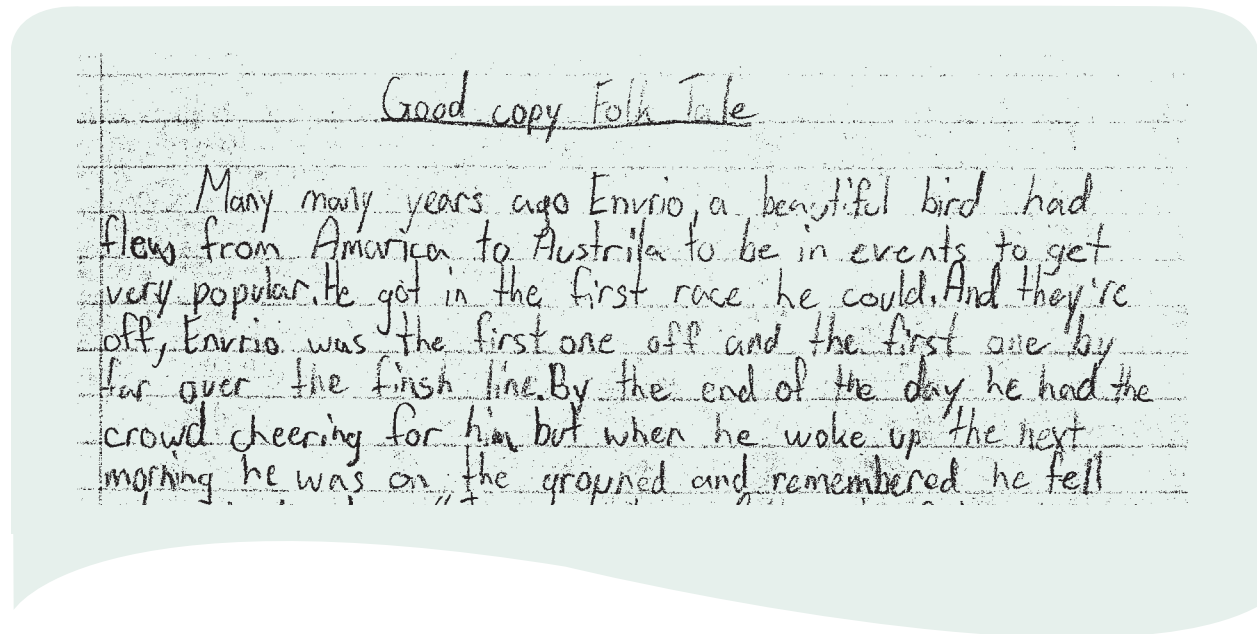 Good copy Folk Tale
Many many years ago Envrio, a beautiful bird had
flew from Amarica to Austrila to be in events to get
very popular. He got in the first race he could. And they're
off, Envrio was the first one off and the first one by
far over the finsh line. By the end of the day he had the
crowd cheering for him but when he woke up the next
morning he was on the grouned and remembered he fell